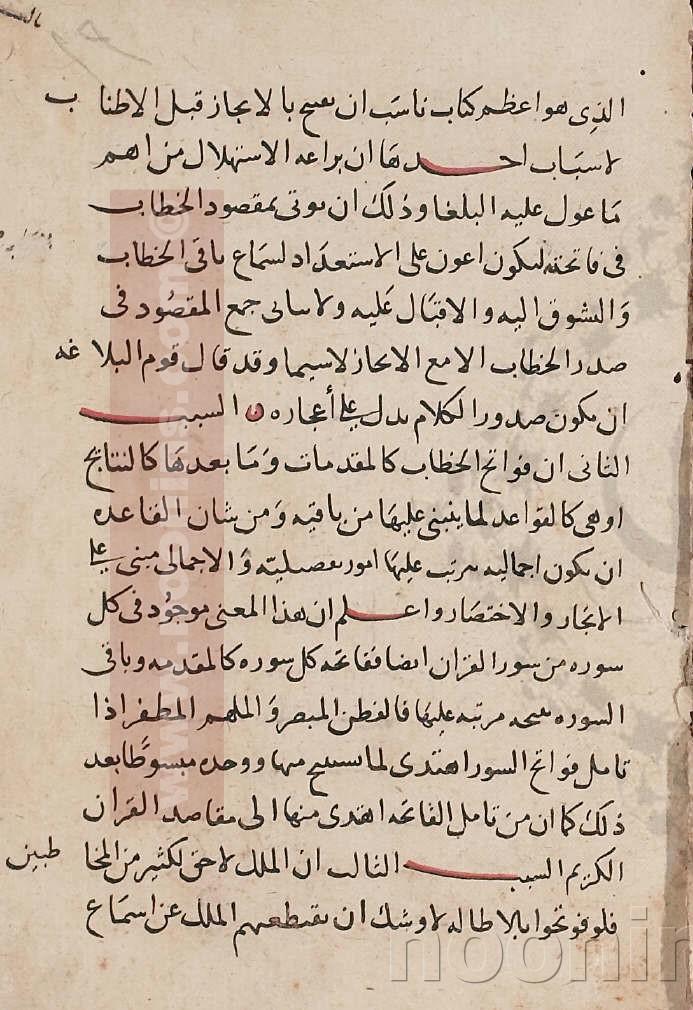 الذى هو اعظم كتاب ناسب ان يفتح بالايجاز قبل الاطناب
لاسباب احدها ان براعه الاستهلال من اهم
ما عول عليه البلغا وذلك ان يوتى بمقصود الخطاب
فى فاتحته ليكون اعون على الاستعداد لسماع باقى الخطاب
والتشوق اليه والاقبال عليه ولا يتاتى جمع المقصود فى
صدر الخطاب الا مع الايجاز لاسيما وقد قال قوم البلاغه
ان يكون صدور الكلام يدل على أعجازه السبب
الثانى ان فواتح الخطاب كالمقدمات وما بعدها كالنتايج
او هى كالقواعد لما ينبنى عليها من باقيه ومن شان القاعده
ان يكون اجماليه يترتب عليها امور تفصيليه والاجمالى مبنى على
الايجاز والاختصار واعلم ان هذا المعنى موجود فى كل
سوره من سور القران ايضا ففاتحه كل سوره كالمقدمه وباقى
السوره نتيجه مرتبه عليها فالفطن المبصر والملهم المظفر اذا
تامل فواتح السور اهتدى لما يستنتج منها ووجده مبسوطا بعد
ذلك كما ان من تامل الفاتحه اهتدى منها الى مقاصد القران
الكريم السبب الثالث ان الملل لاحق لكثير من المخاطبين
فلو فوتحوا بالاطاله لاوشك ان يقتطعهم الملل عن اسماع
www.knooninfs.com ©
noonin